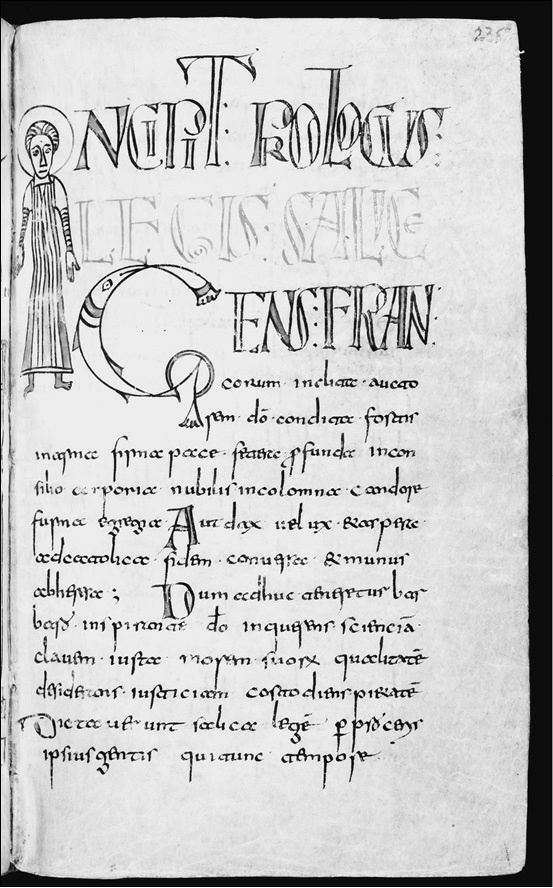 235
INCIPIT PROLOGUS:
LEGIS: SALICE
GENS: FRAN
corum · inclita · aucto
sem · do · condita · fortis
firma pace · profunda incon
silio corporia nobilis incolomna · candore
forma egregia Audax uelox & aspera ·
ad catolica fidem conuersa & munus
Dum adhuc teneretur bar
bar inspiratě do inquerens scienciã
clauem · iusta morem suorũ qualitatẽ
desiderans · iusticiam costodiens pietatẽ
Dictauerunt salica legẽ p proceris
ipsius gentis qui tunc tempore